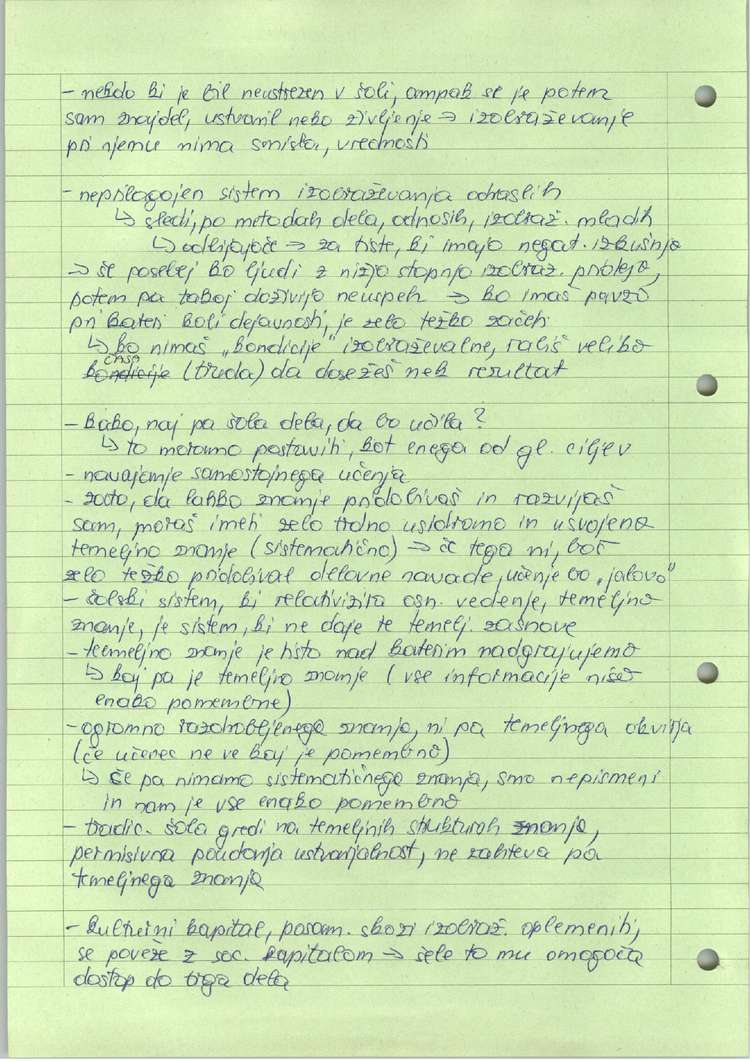 - nekdo ki je bil neustrezen v šoli, ampak se je potem
sam znajdel, ustvaril neko življenje → izobraževanje
pri njemu nima smisla, vrednosti
- neprilagojen sistem izobraževanja odraslih
↳ sledi, po metodah dela, odnosih, izobraž. mladih
↳ odbijajoče → za tiste, ki imajo negat. izkušnjo
→ še posebej ko ljudi z nižjo stopnjo izobraz. pridejo,
potem pa takoj doživijo neuspeh → ko imaš pavzo
pri kateri koli dejavnosti, je zelo težko začeti
↳ ko nimaš „kondicije" izobraževalne, rabiš veliko
časa
kondicije (truda) da dosežeš nek rezultat
- kako, naj pa šola dela, da bo učila?
↳ to moramo postaviti, kot enega od gl. ciljev
- navajanje samostojnega učenja
- zato, da lahko znanje pridobivaš in razvijaš
sam, moraš imeti zelo trdno usidrano in usvojeno
temeljno znanje (sistematično) → če tega ni, boš
zelo težko pridobival delovne navade, učenje bo „jalovo"
- šolski sistem, ki relativizira osn. vedenje, temeljno
znanje, je sistem, ki ne daje te temelj. zasnove
- teemeljno znanje je tisto nad katerim nadgrajujemo
↳ kaj pa je temeljno znanje (vse informacije niso
enako pomembne)
- ogromno razdrobljenega znanja, ni pa temeljnega okvirja
(če učenec ne ve kaj je pomembno)
↳ če pa nimamo sistematičnega znanja, smo nepismeni
in nam je vse enako pomembno
- tradic. šola gredi na temeljnih strukturah znanja,
permisivna poudarja ustvarjalnost, ne zahteva pa
temeljnega znanja
- kulturni kapital, posam. skozi izobraž. oplemeniti,
se poveže z soc. kapitalom → šele to mu omogoča
dostop do trga dela